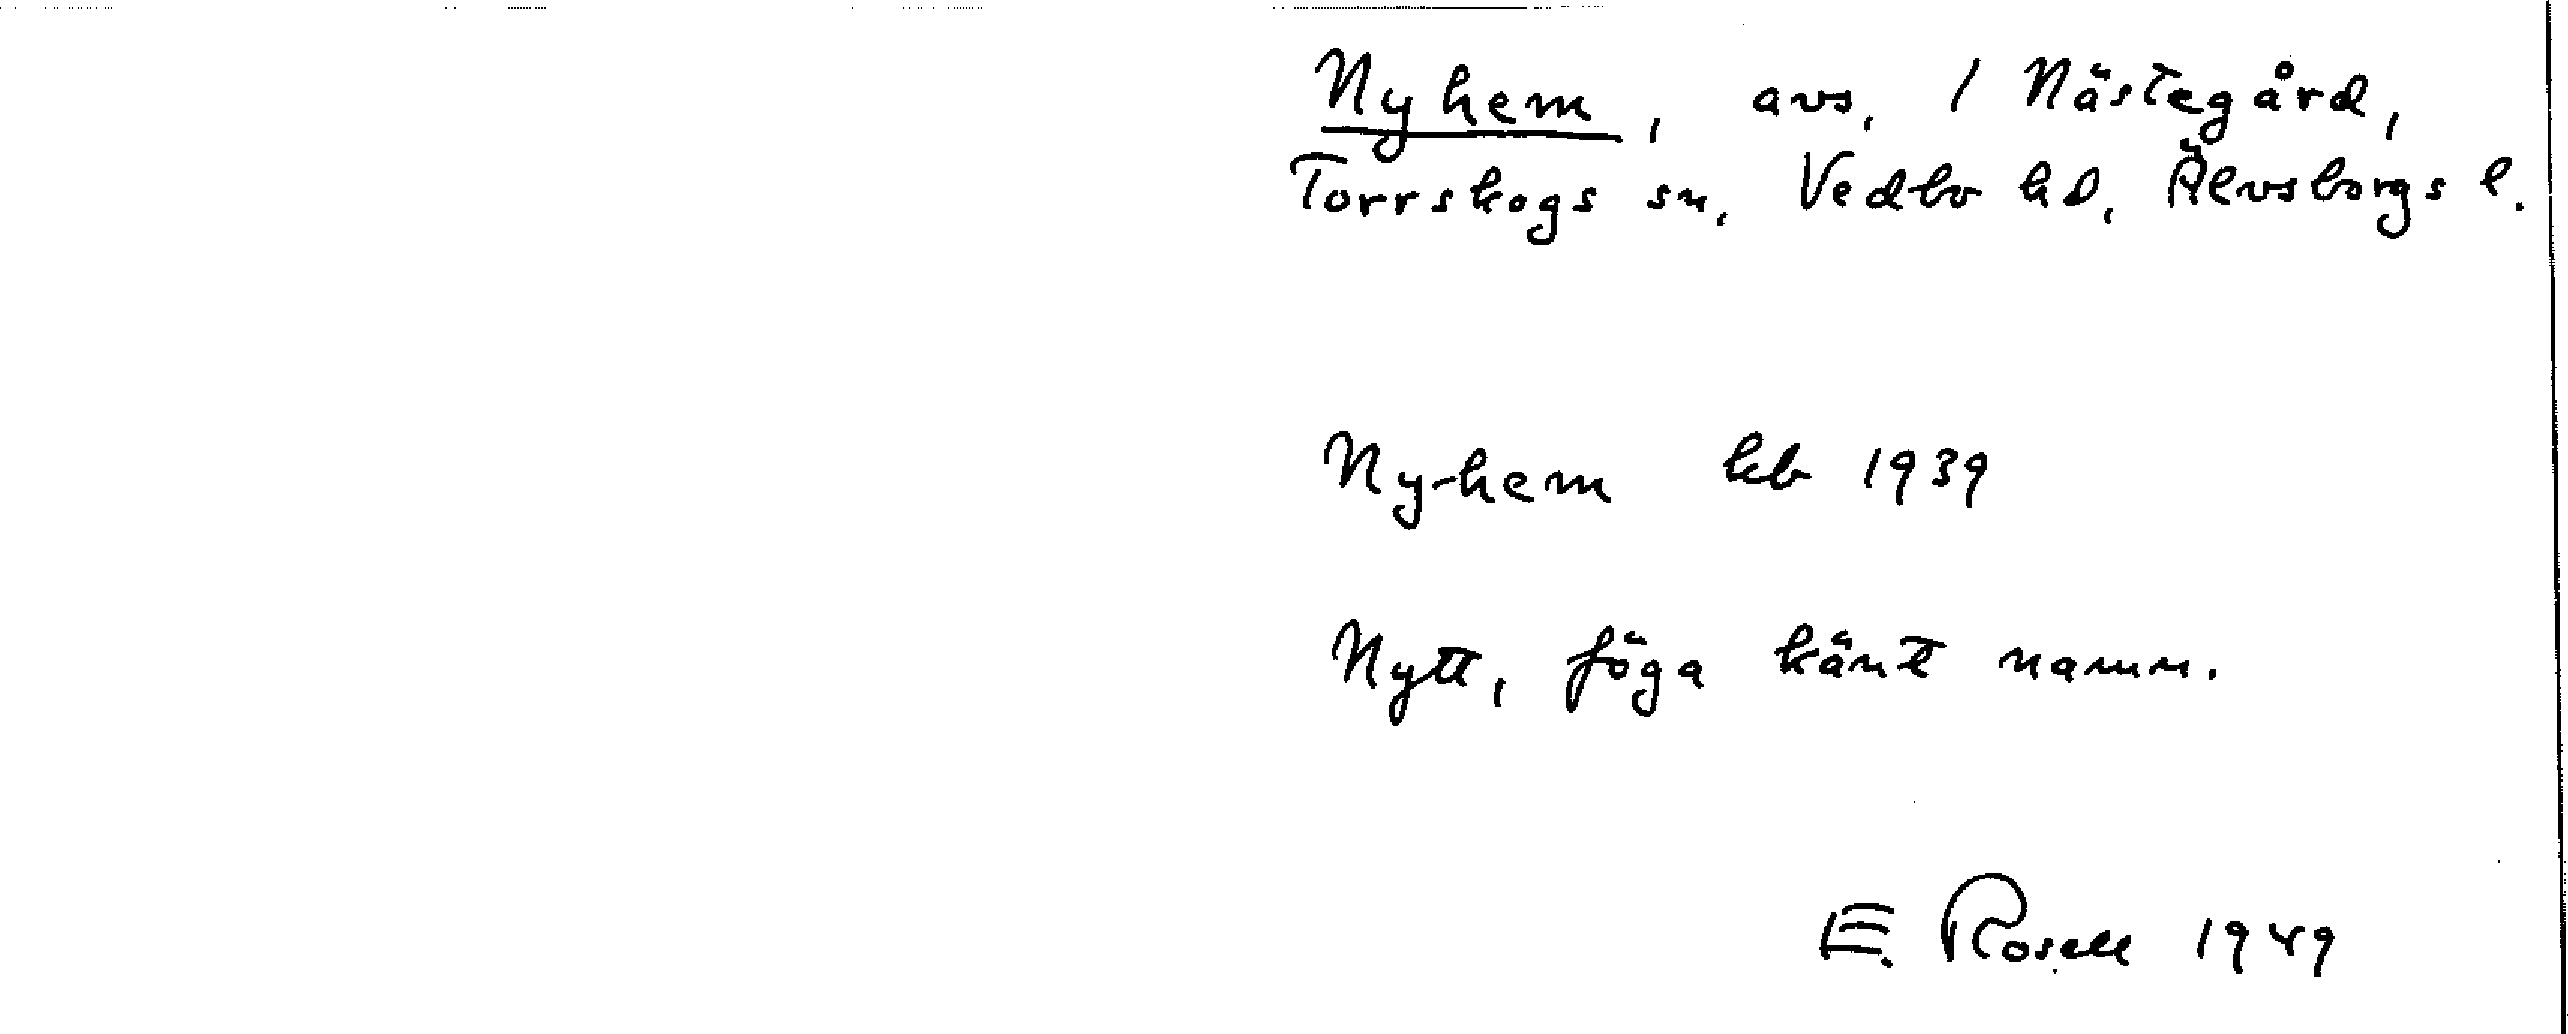 Nyhem, avs. 1 Nästegård,
Torrskogs sn, Vedbo hd, Älvsborgs l.
Ny-hem kb 1939
Nytt, föga känt namn.
E. Rosell 1949